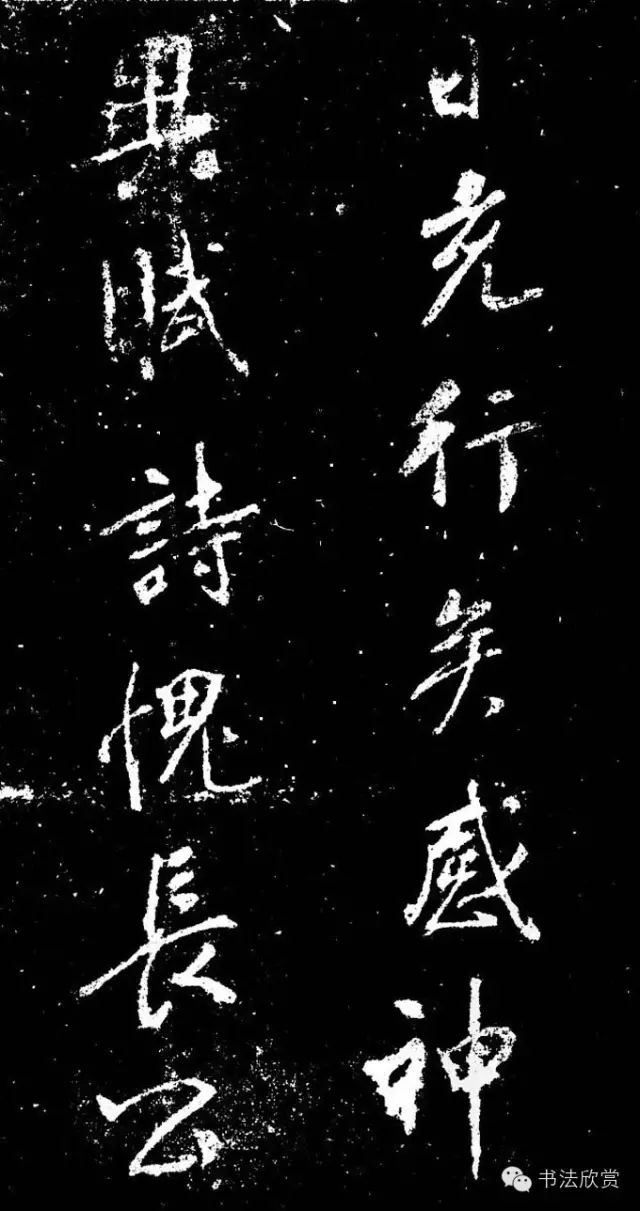 日行矣感神
賦詩愧長公
书法欣赏